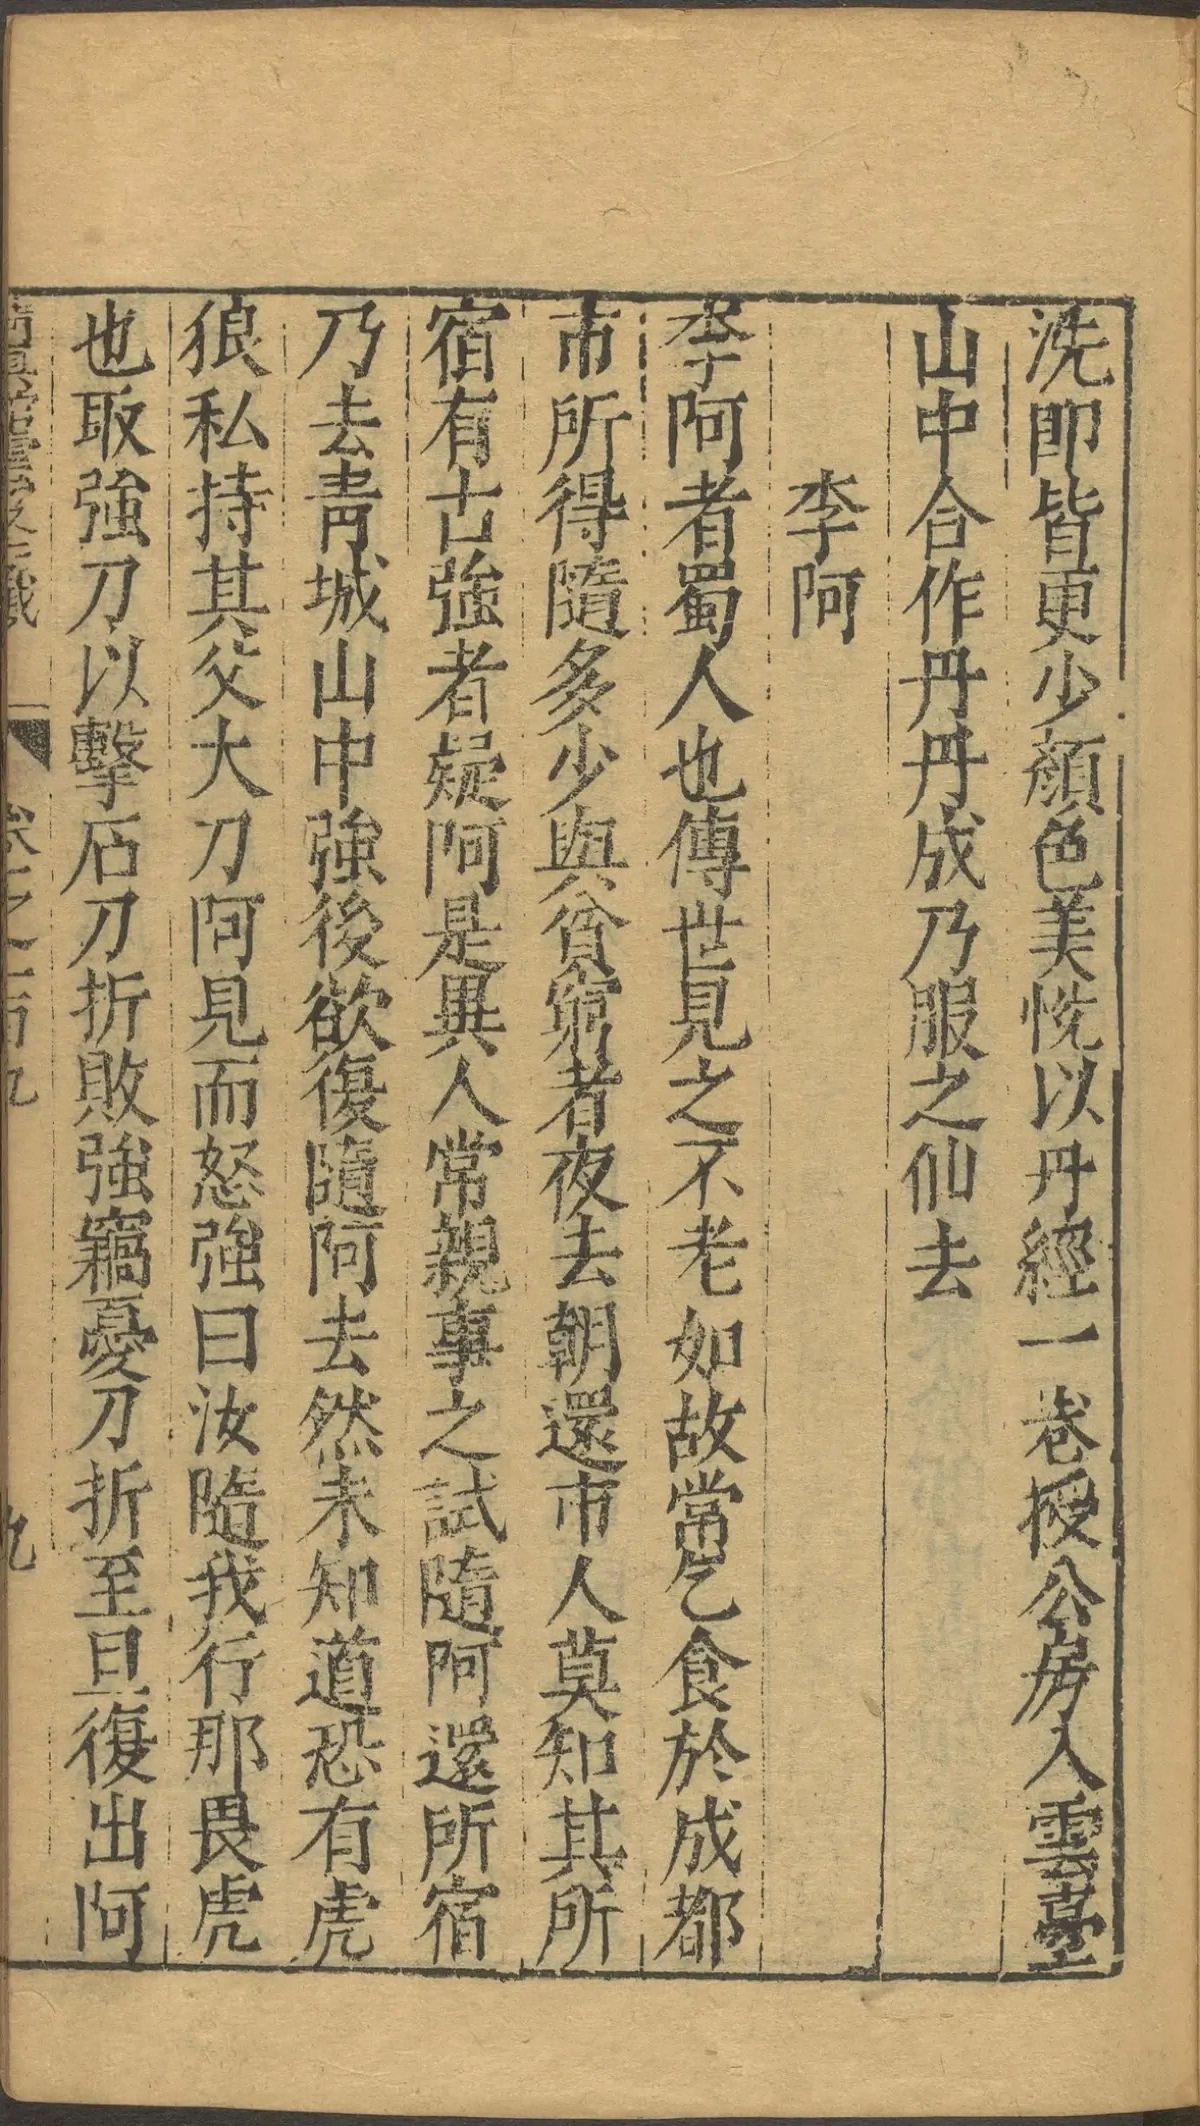 洗即皆更少顏色美悅以丹經一卷授公房入雲臺
山中合作丹丹成乃服之仙去
李阿
李阿者蜀人也傳世見之不老如故常乞食於成都
市所得隨多少與貧窮者夜去朝還市人莫知其所
宿有古強者疑阿是異人常親事之試隨阿還所宿
乃去青城山中強後欲復隨阿去然未知道恐有虎
狼私持其父大刀阿見而怒強曰汝隨我行那畏虎
也取強刀以擊石刀折敗強竊憂刀折至旦復出阿
卷之一百九
九